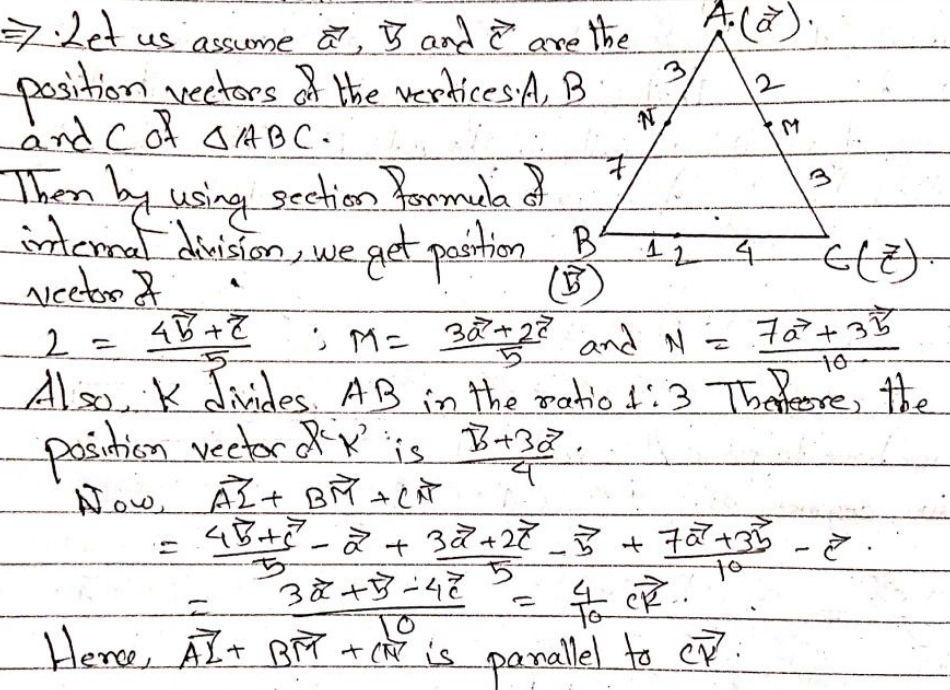 ⇒ Let us assume a⃗, b⃗ and c⃗ are the
position vectors of the vertices A, B
and C of △ABC.
Then by using section formula of
internal division, we get position
vector of
L = (4b⃗ + c⃗)/5 ; M = (3a⃗ + 2c⃗)/5 and N = (7a⃗ + 3b⃗)/10
Also, K divides AB in the ratio 1:3 Therefore, the
position vector of 'K' is (b⃗ + 3a⃗)/4.
Now, AL⃗ + BM⃗ + CN⃗
= (4b⃗ + c⃗)/5 - a⃗ + (3a⃗ + 2c⃗)/5 - b⃗ + (7a⃗ + 3b⃗)/10 - c⃗.
= (3a⃗ + b⃗ - 4c⃗)/10 = 4/10 CK⃗.
Hence, AL⃗ + BM⃗ + CN⃗ is parallel to CK⃗.
A (a⃗).
3
2
N
M
7
3
B
1
L
4
C (c⃗).
(b⃗)